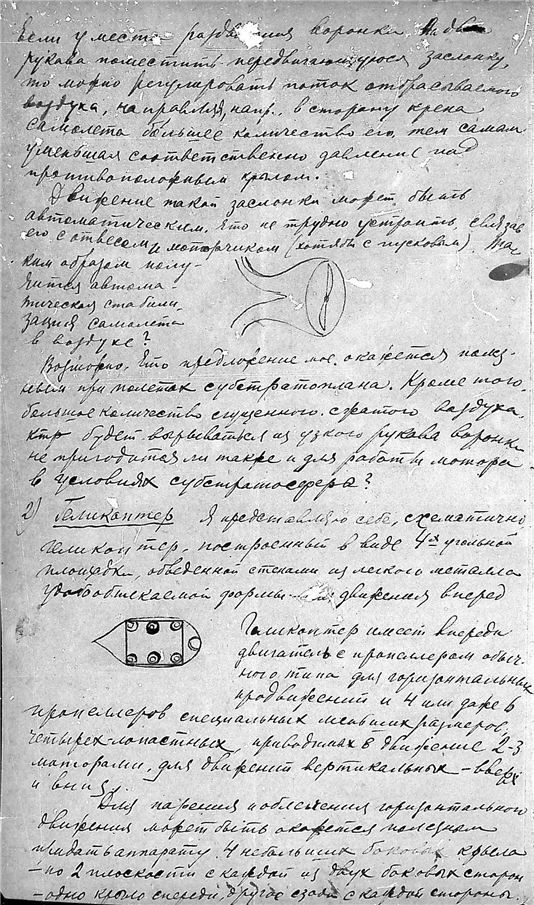 Если у места раздвоения воронки на два
рукава поместить передвигающуюся заслонку,
то можно регулировать поток отбрасываемого
воздуха, направляя, напр., в сторону крена
самолета большее количество его, тем самым
уменьшая соответственно давление над
противоположным крылом.
Движение такой заслонки может быть
автоматическим, что не трудно устроить, связав
его с отвесом и моторчиком (хотябы с пусковым) Та-
ким образом полу-
чится автома
тическая стабили-
зация самолета
в воздухе?
Возможно, что предложение мое окажется полез-
ным при полетах субстратоплана. Кроме того,
большое количество сгущенного, сжатого воздуха,
ктр будет вырываться из узкого рукава воронки
не пригодится ли также и для работы мотора
в условиях субстратосферы?
2) Геликоптер Я представляю себе, схематично
геликоптер, построенный в виде 4х угольной
площадки, обведенной стенами из легкого металла
удобообтекаемой формы для движения вперед
Геликоптер имеет впереди
двигатель с пропеллером обыч-
ного типа для горизонтальных
продвижений и 4 или даже 6
пропеллеров специальных меньших размеров,
четырех-лопастных, приводимых в движение 2-3
моторами, для движений вертикальных – вверх
и вниз.
Для парения и облегчения горизонтального
движения может быть окажется полезным
придать аппарату 4 небольших боковых крыла
– по 2 плоскости с каждой из двух боковых сторон
– одно крыло спереди, другое сзади с каждой стороны.